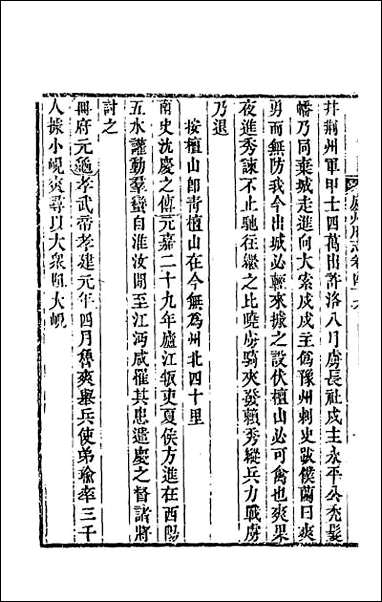 廬州府志卷四十九
并荊州軍甲士四萬出許洛八月虜長社戍主永平公禿髮
幡乃同棄城走進向大索戍戍主偽豫州刺史跋僕蘭曰爽
勇而無防我今出城必輕來據之設伏檀山必可禽也爽果
夜進秀諫不止馳往繼之比曉虜騎夾發賴秀縱兵力戰虜
乃退
按檀山卽青檀山在今無為州北四十里
南史沈慶之傳元嘉二十九年廬江叛吏夏侯方進在西陽
五水讙動羣蠻自淮汝間至江沔咸罹其患遣慶之督諸將
討之
冊府元龜孝武帝孝建元年四月魯爽舉兵使弟瑜率三千
人據小峴爽尋以大衆頓大峴